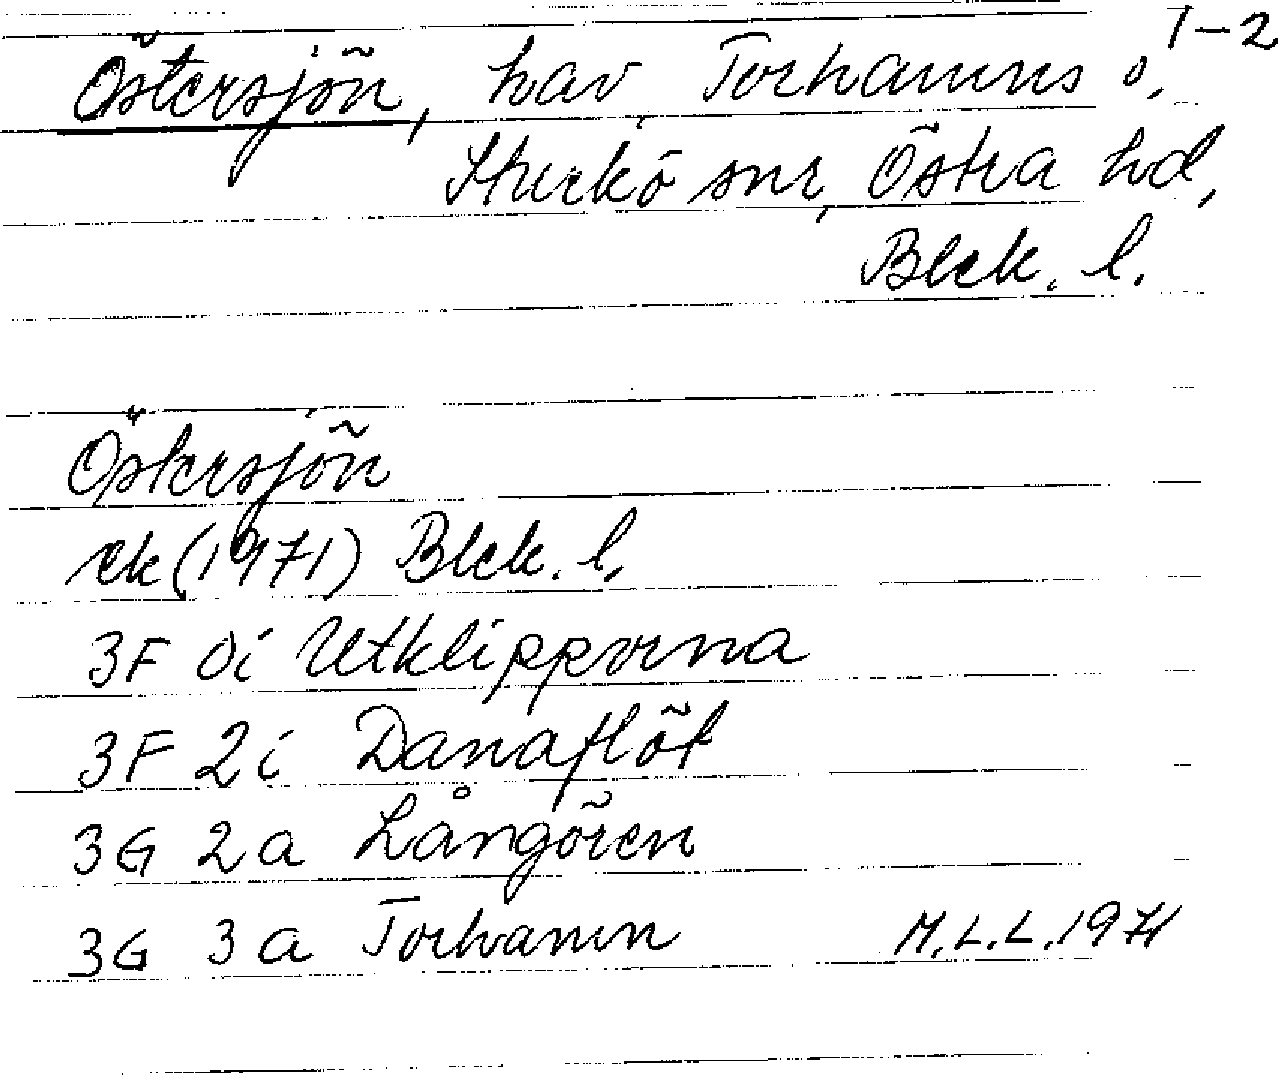 1-2
Östersjön, hav, Torhamns o.
Sturkö snr, Östra hd,
Blek. l.
Östersjön
ek (1971) Blek. l.
3F 0i Utklipporna
3F 2i Danaflöt
3G 2a Långören
3G 3a Torhamn M.L.L. 1971